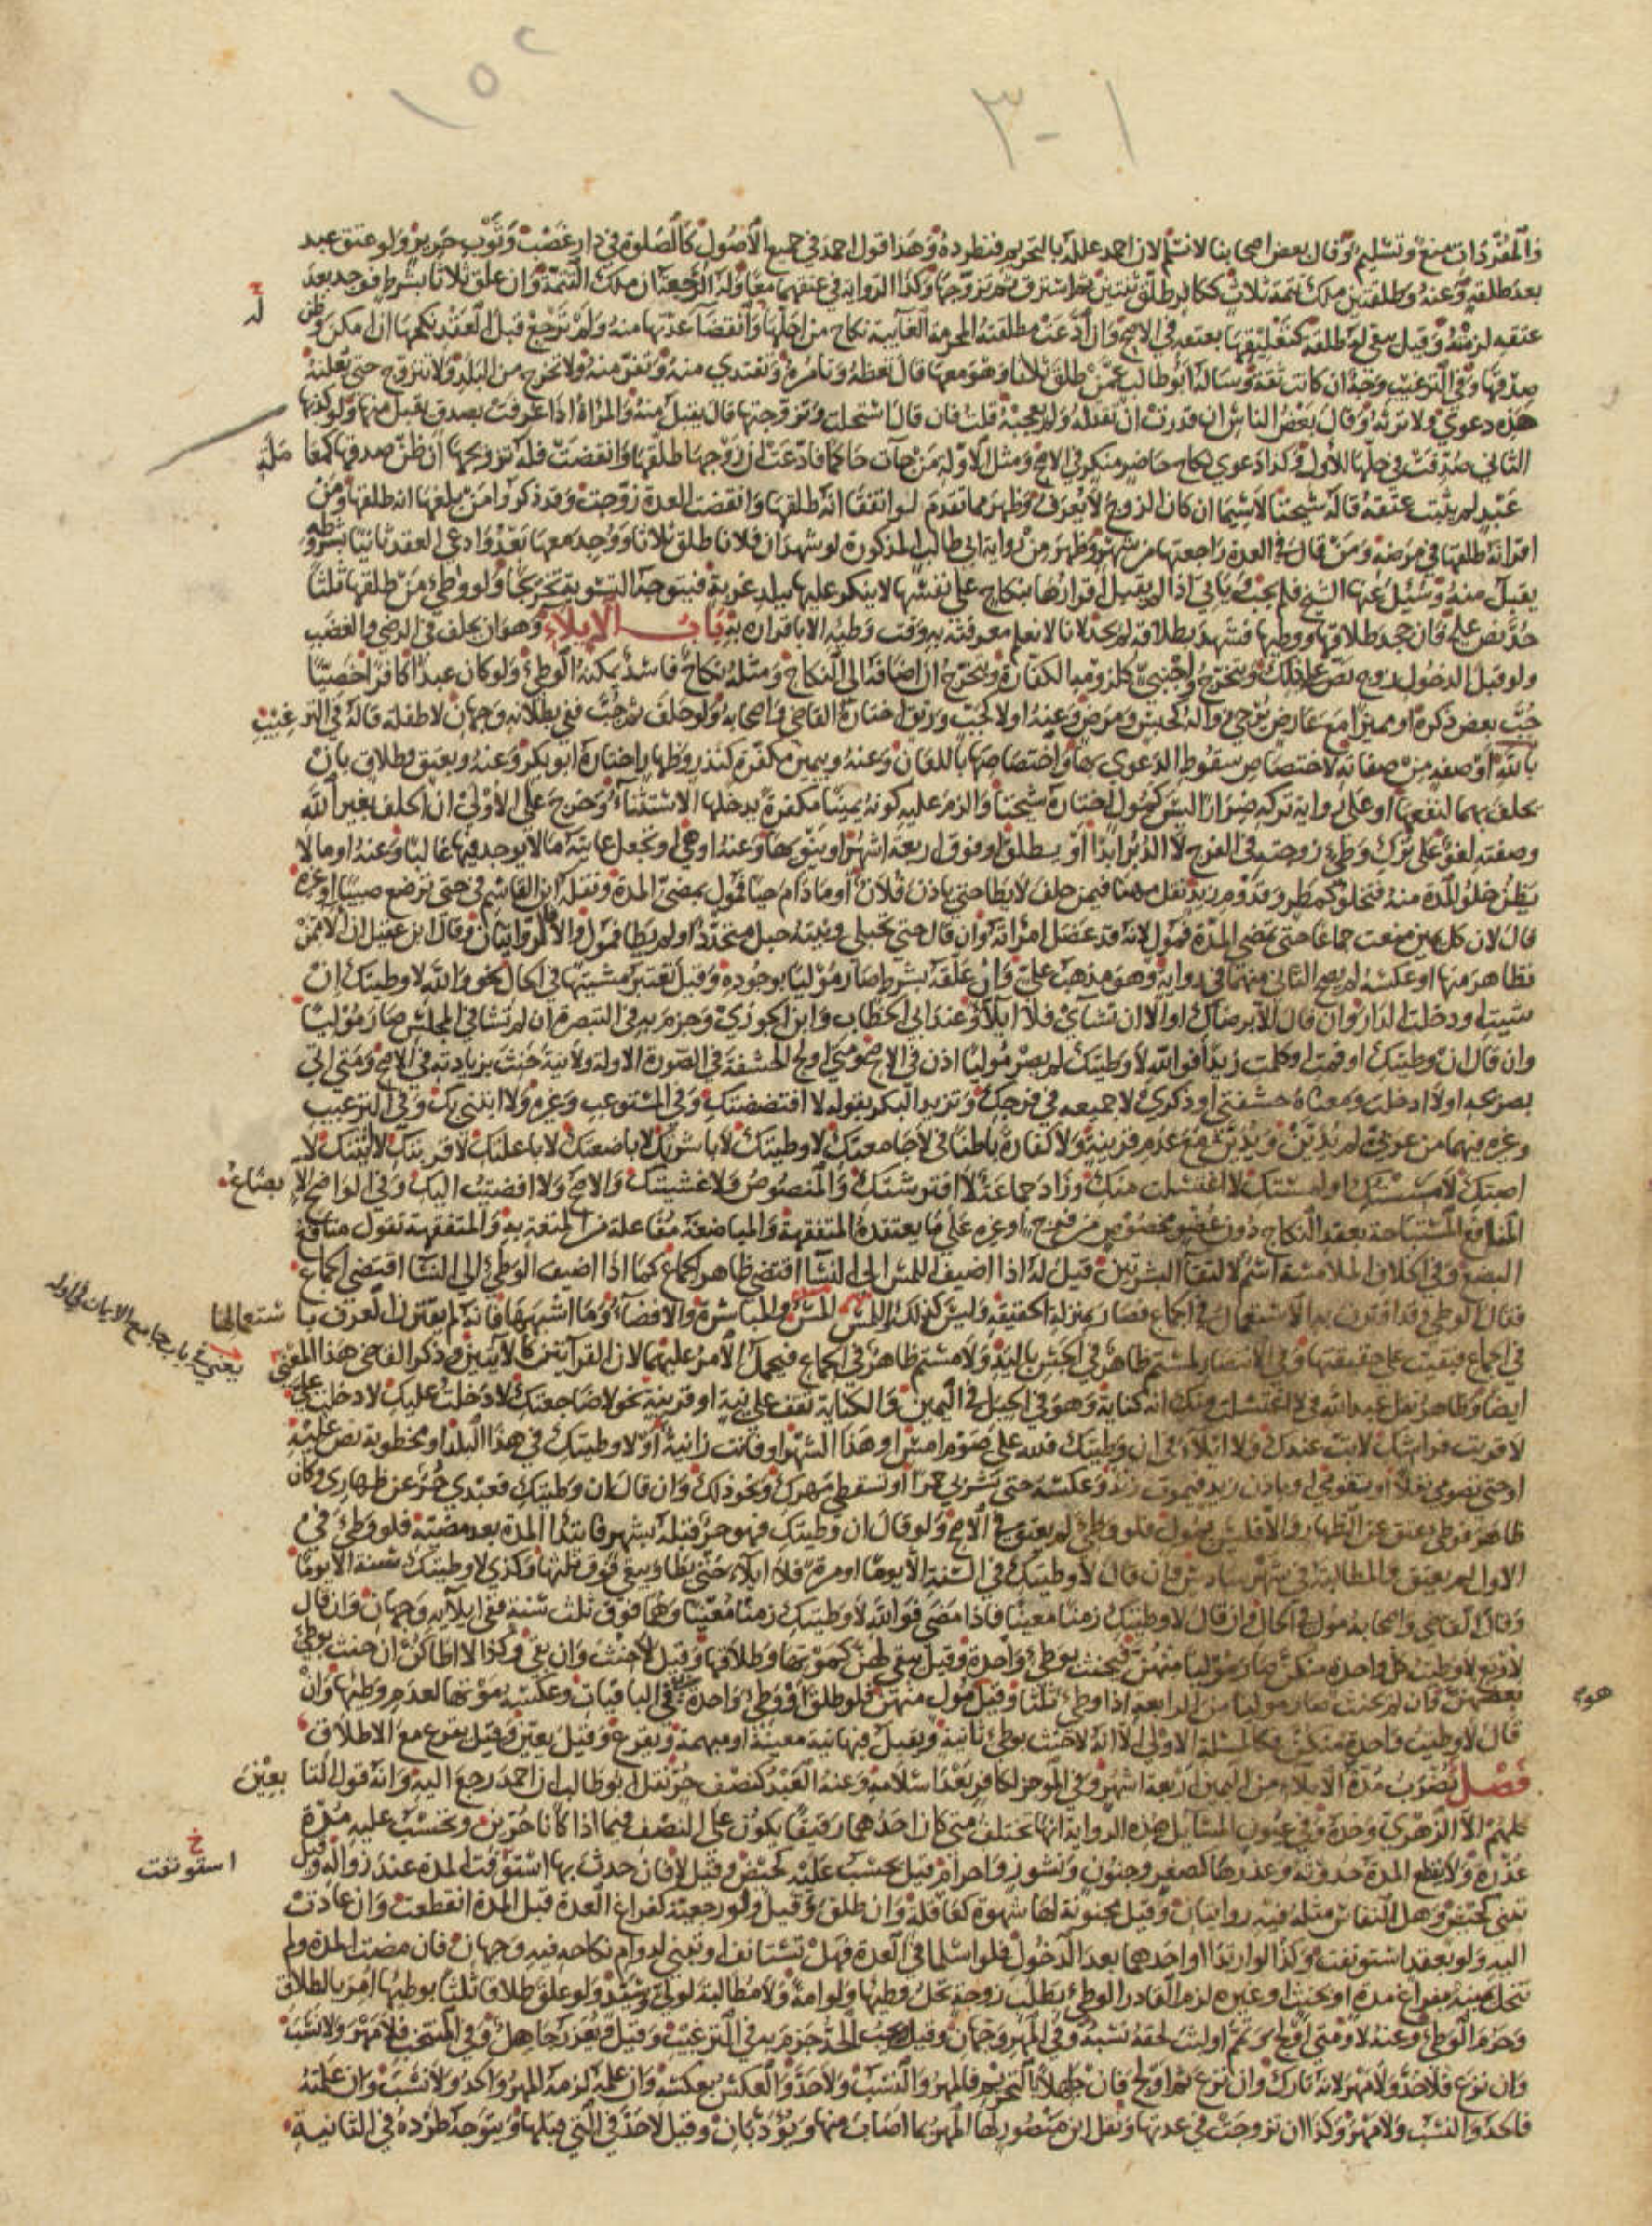 والمفردات منع وتسليم وقال بعض اصحابنا لا نسلم لان احمد علله بالتحريم فنطرده وهذا قول احمد في جميع الاصول كالصلوة في دار غصب وثوب حرير ولو عتق عبد
بعد طلقة وعنه وطلقتين ملك تتمة ثلاث ككافر طلق ثنتين ثم استرق ثم تزوجها وكذا الرواية في عتقهما معا وله الرجعة ان ملك التتمة وان علق ثلاثا بشرط فوجد بعد
عتقه لزمته وقيل يبقى له طلقة كتعليقها بعتقه في الاصح وان ادعت مطلقته المحرمة الغايبة نكاح من احلها وانقضا عدتها منه ولم ترجع قبل العقد نكحها ان امكن وظن
صدقها وفي الترغيب وجه ان كانت ثقة وساله ابو طالب عمن طلق ثلاثا وهو معها قال تعظه وتامره وتفتدي منه وتفر منه ولا تخرج من البلد ولا تتزوج حتى يعلنه
هذه دعوى ولا ترثه وقال بعض الناس ان قدرت ان تقتله ولم يعجبه قلت فان قال استحلت وتزوجتها قال يقبل منه والمراة اذا عرفت بصدق يقبل منها ولو كذبها
الثاني صدقت في حلها للاول وكذا دعوى نكاح حاضر منكر في الاصح ومثل الاولة من جات حاكما فادعت ان زوجها طلقها وانقضت فله تزويجها ان ظن صدقها كمعاملة
عبد لم يثبت عتقه قاله شيخنا لا سيما ان كان الزوج لا يعرف وظهر مما تقدم لو اتفقا انه طلقها وانقضت العدة زوجت وقد ذكروا من بلغها انه طلقها ومن
اقر انه طلقها في مرضه ومن قال في العدة راجعتها من شهر وظهر من رواية ابي طالب المذكورة لو شهد ان فلانا طلق ثلاثا ووجد معها بعد وادعى العقد ثانيا بشرطه
يقبل منه وسئل عنها الشيخ فلم يجب وياتي اذا لم يقبل اقرارها بنكاح على نفسها لا ينكر عليها ببلد غربة فيتوجه التسوية تخريجا ولو وطئ من طلقها ثلثا
حد نص عليه فان جحد طلاقها ووطيها فشهد بطلاقه لم يحد لانا لا نعلم معرفته به وقت وطيه الا باقراره به باب الايلاء وهو ان يحلف في الرضى والغضب
ولو قبل الدخول زوج نص على ذلك ويتخرج واجنبي كلزومه الكفارة ويتخرج ان اضافه الى النكاح ومثله نكاح فاسد يمكنه الوطئ ولو كان عبدا كافرا خصيا
جب بعض ذكره او مميزا مع عارض يرجى زواله كحبس ومرض وعنه اولا كجب ورتق اختاره القاضي واصحابه ولو حلف ثم جب ففي بطلانه وجهان لا طفلة قاله في الترغيب
بالله او صفة من صفاته لاختصاص سقوط الدعوى بها واختصاصها باللعان وعنه وبيمين مكفرة كنذر وظهار اختاره ابو بكر وعنه وبعتق وطلاق بان
يحلف بهما لنفعها او على رواية تركه ضرارا ليس كمول اختاره شيخنا والزم عليه كونه يمينا مكفرة يدخلها الاستثناء وخرج على الاولى ان الحلف بغير الله
وصفته لغو على ترك وطئ زوجته في الفرج لا الدبر ابدا او يطلق او فوق اربعة اشهر او ينويها وعنه او هي او يجعل غايته ما لا يوجد فيها غالبا وعنه او ما لا
يظن خلو المدة منه فتخلو كمطر وقدوم زيد نقل مهنا فيمن حلف لا يطا حتى ياذن فلان او ما دام حيا فمول بمضي المدة ونقله ابن القاسم في حتى ترضع صبيا او غيره
قال لان كل يمين منعت جماعا حتى تمضي المدة فمول لانه قد عضل امراته وان قال حتى تحبلي ونيته حبل متجدد او لم يطا فمول والا فالروايتان وقال ابن عقيل ان الا من
تظاهر منها او عكسه لم يصح الثاني منهما في رواية وهو مذهب علي وان علقه بشرط صار موليا بوجوده وقيل تعتبر مشيتها في الحال نحو والله لا وطيتك ان
شيت او دخلت الدار وان قال الا برضاك او الا ان تشاي فلا ايلاء عند ابي الخطاب وابن الجوزي وجزم به في التبصرة ان لم تشا في المجلس صار موليا
وان قال ان وطيتك او قمت او كلمت زيدا فوالله لا وطيتك لم يصر موليا اذن في الاصح ومتى اولج الحشفة في الصورة الاولة ولا نية حنث بزيادته في الاصح ومتى اتى
بصريحه اولا ادخلت ومعناه حشفتي او ذكري لا جميعه في فرجك وتزيد البكر بقوله لا افتضضتك وفي المستوعب وغيره ولا ابتني بك وفي الترغيب
وغيره فيهما من عربي لم يدين ويدين مع عدم قرينة ولا كفارة باطنا في لا جامعتك لا وطيتك لا باشرتك لا باضعتك لا باعلتك لا قربتك لا اتيتك لا
اصبتك لا مسستك او لمستك لا اغتسلت منك وزاد جماعة لا افترشتك والمنصوص ولا غشيتك والاصح ولا افضيت اليك وفي الواضح الابضاع
المنافع المستباحة بعقد النكاح دون عضو مخصوص من فرج او غيره على ما يعتقده المتفقهة والمباضعة مفاعلة من المتعة به والمتفقهة تقول منافع
البضع وفي الخلاف الملامسة اسم لالتقا البشرتين قيل له اذا اضيف اللمس الى النسا اقتضى ظاهره الجماع كما اذا اضيف الوطئ الى النسا اقتضى الجماع
فقال الوطئ قد اقترن به الاستعمال في الجماع فصار بمنزلة الحقيقة وليس كذلك اللمس والمباشرة والافضاء وما اشبهها فانه لم يقترن العرف باستعمالها
في الجماع فبقيت على حقيقتها وفي الانتصار لمستم ظاهر في الجس باليد ولامستم ظاهر في الجماع فيحمل الامر عليهما لان القراتين كالايتين وذكر القاضي هذا المعنى
ايضا وظاهر نقل عبد الله في لا اغتسلت منك انه كناية وهو في الحيل في اليمين والكناية تقف على نية او قرينة نحو لا ضاجعتك لا دخلت عليك لا دخلت علي
لا قربت فراشك لا بت عندك ولا ايلاء في ان وطيتك فلله علي صوم امس او هذا الشهر او فانت زانية او لا وطيتك في هذا البلد او مخطوبة نص عليه
او حتى تصومي نفلا او تقومي او ياذن زيد فيموت زيد وعكسه حتى تشربي خمرا او تسقطي مهرك ونحو ذلك وان قال ان وطيتك فعبدي حر عن ظهاري وكان
ظاهر فوطئ عتق عن الظهار والا فليس بمول فلو وطئ لم يعتق في الاصح ولو قال ان وطيتك فهو حر قبله بشهر فابتدا المدة بعد مضيه فلو وطئ في
الاول لم يعتق والمطالبة في شهر سادس وان قال لا وطيتك في السنة الا يوما او مرة فلا ايلاء حتى يطا ويبقى فوق ثلثها وكذى لا وطيتك سنة الا يوما
وقال القاضي واصحابه مول في الحال وان قال لا وطيتك زمنا معينا فاذا مضى فوالله لا وطيتك زمنا معينا وهما فوق ثلث سنة ففي ايلايه وجهان وان قال
لاربع لا وطيت كل واحدة منكن صار موليا منهن فيحنث بوطئ واحدة وقيل يبقى لهن كموتها وطلاقها وقيل لا حنث وان بقي وكذا لا اطاكن ان حنث بوطئ
بعضهن فان لم يحنث صار موليا من الرابعة اذا وطئ ثلثا وقيل مول منهن فلو طلق او وطئ واحدة في الباقيات وعكسه موتها لعدم وطيها وان
قال لا وطيت واحدة منكن فكالمسئلة الاولى الا انه لا حنث بوطئ ثانية ويقبل فيها نية معينة او مبهمة ويقرع وقيل يعين وقيل يقرع مع الاطلاق
فصل تضرب مدة الايلاء من اليمين اربعة اشهر وفي الموجز لكافر بعد اسلامه وعنه العبد كنصف حر نقل ابو طالب ان احمد رجع اليه وانه قول التابعين
كلهم الا الزهري وحده وفي عيون المسايل هذه الرواية انها تختلف متى كان احدهما رقيقا يكون على النصف فيما اذا كانا حرين ويحتسب عليه مدة
عذره ولا يقطع المدة حدوثه وعذرها كصغر وجنون ونشوز واحرام قيل يحسب عليه كحيض وقيل لا فان حدث بها استؤنفت المدة عند زواله وقيل
تبنى كحيض وهل النفاس مثله فيه روايتان وقيل مجنونة لها شهوة كعاقلة وان طلق وقيل ولو رجعية كفراغ العدة قبل المدة انقطعت وان عادت
اليه ولو بعقد استؤنفت وكذا لو ارتدا او احدهما بعد الدخول فلو اسلما في العدة فهل تستانف او تبنى لدوام نكاحه فيه وجهان فان مضت المدة ولم
تنحل يمينه بفراغ مدة او بحنث او غيره لزم القادر الوطئ بطلب زوجة يحل وطيها ولو امة ولا مطالبة لولي وسيد ولو علق طلاقا ثلثا بوطيها امر بالطلاق
وحرم الوطئ وعنه لا ومتى اولج وتمم او لبث لحقه نسبه وفي المهر وجهان وقيل يجب الحد جزم به في الترغيب وقيل ويعزر جاهل وفي المنتخب فلا مهر ولا نسب
وان نزع فلا حد ولا مهر لانه تارك وان نزع ثم اولج فان جهلا التحريم فالمهر والنسب ولا حد والعكس بعكسه وان علمه لزمه المهر والحد ولا نسب وان علمته
فالحد والنسب ولا مهر وكذا ان تزوجت في عدتها ونقل ابن منصور لها المهر بما اصاب منها ويؤدبان وقيل لا حد في التي قبلها ويتوجه طرده في الثانية